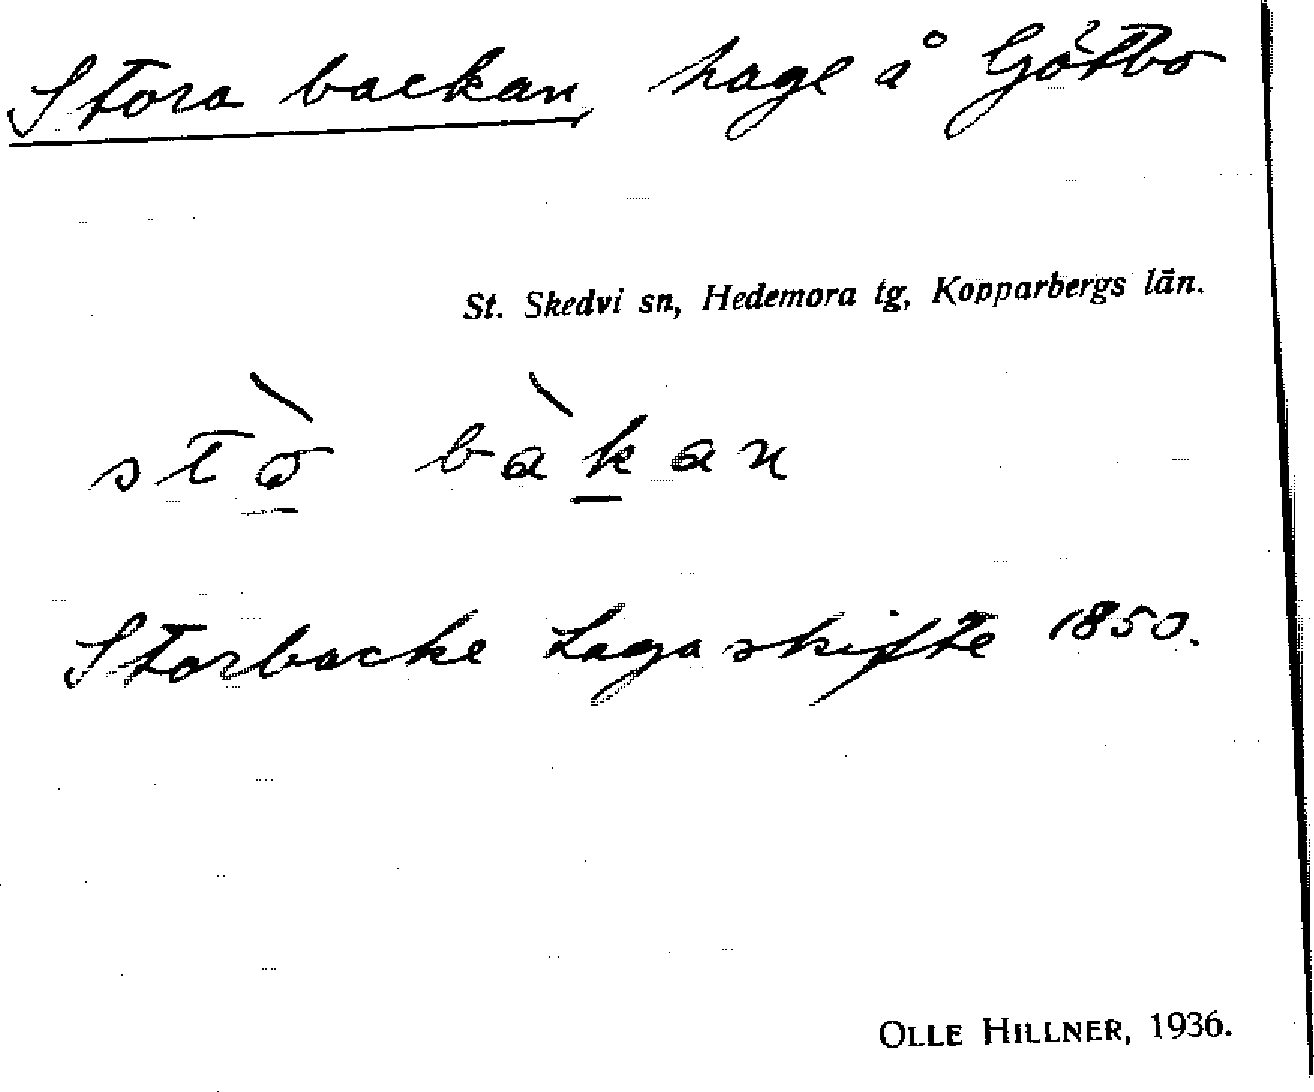 Stora backan, hage å Götbo
St. Skedvi sn, Hedemora tg, Kopparbergs län.
stò bàkan
Storbacke Laga skifte 1850.
OLLE HILLNER, 1936.